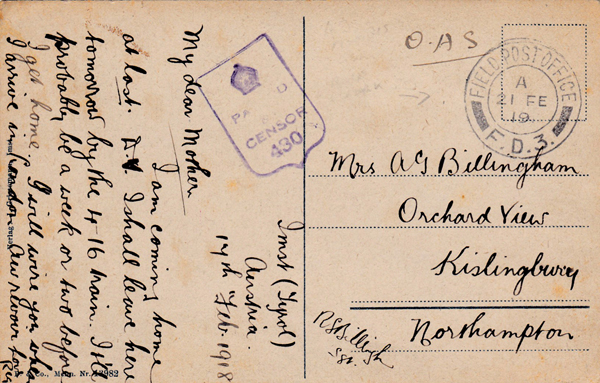 Imst (Tyrol)
Austria.
17th Feb. 1918
My dear Mother
I am coming home
at last. I shall leave here
tomorrow by the 4-16 train. It'll
probably be a week or two before
I get home. I will wire you when
I arrive in London. Au revoir love
Reg
CENSOR
430
O.A.S
FIELD POST OFFICE
A
21 FE
19
F.D.3.
Mrs A G Billingham
Orchard View
Kislingbury
Northampton
Sgt.
& Co., Nr. 13982